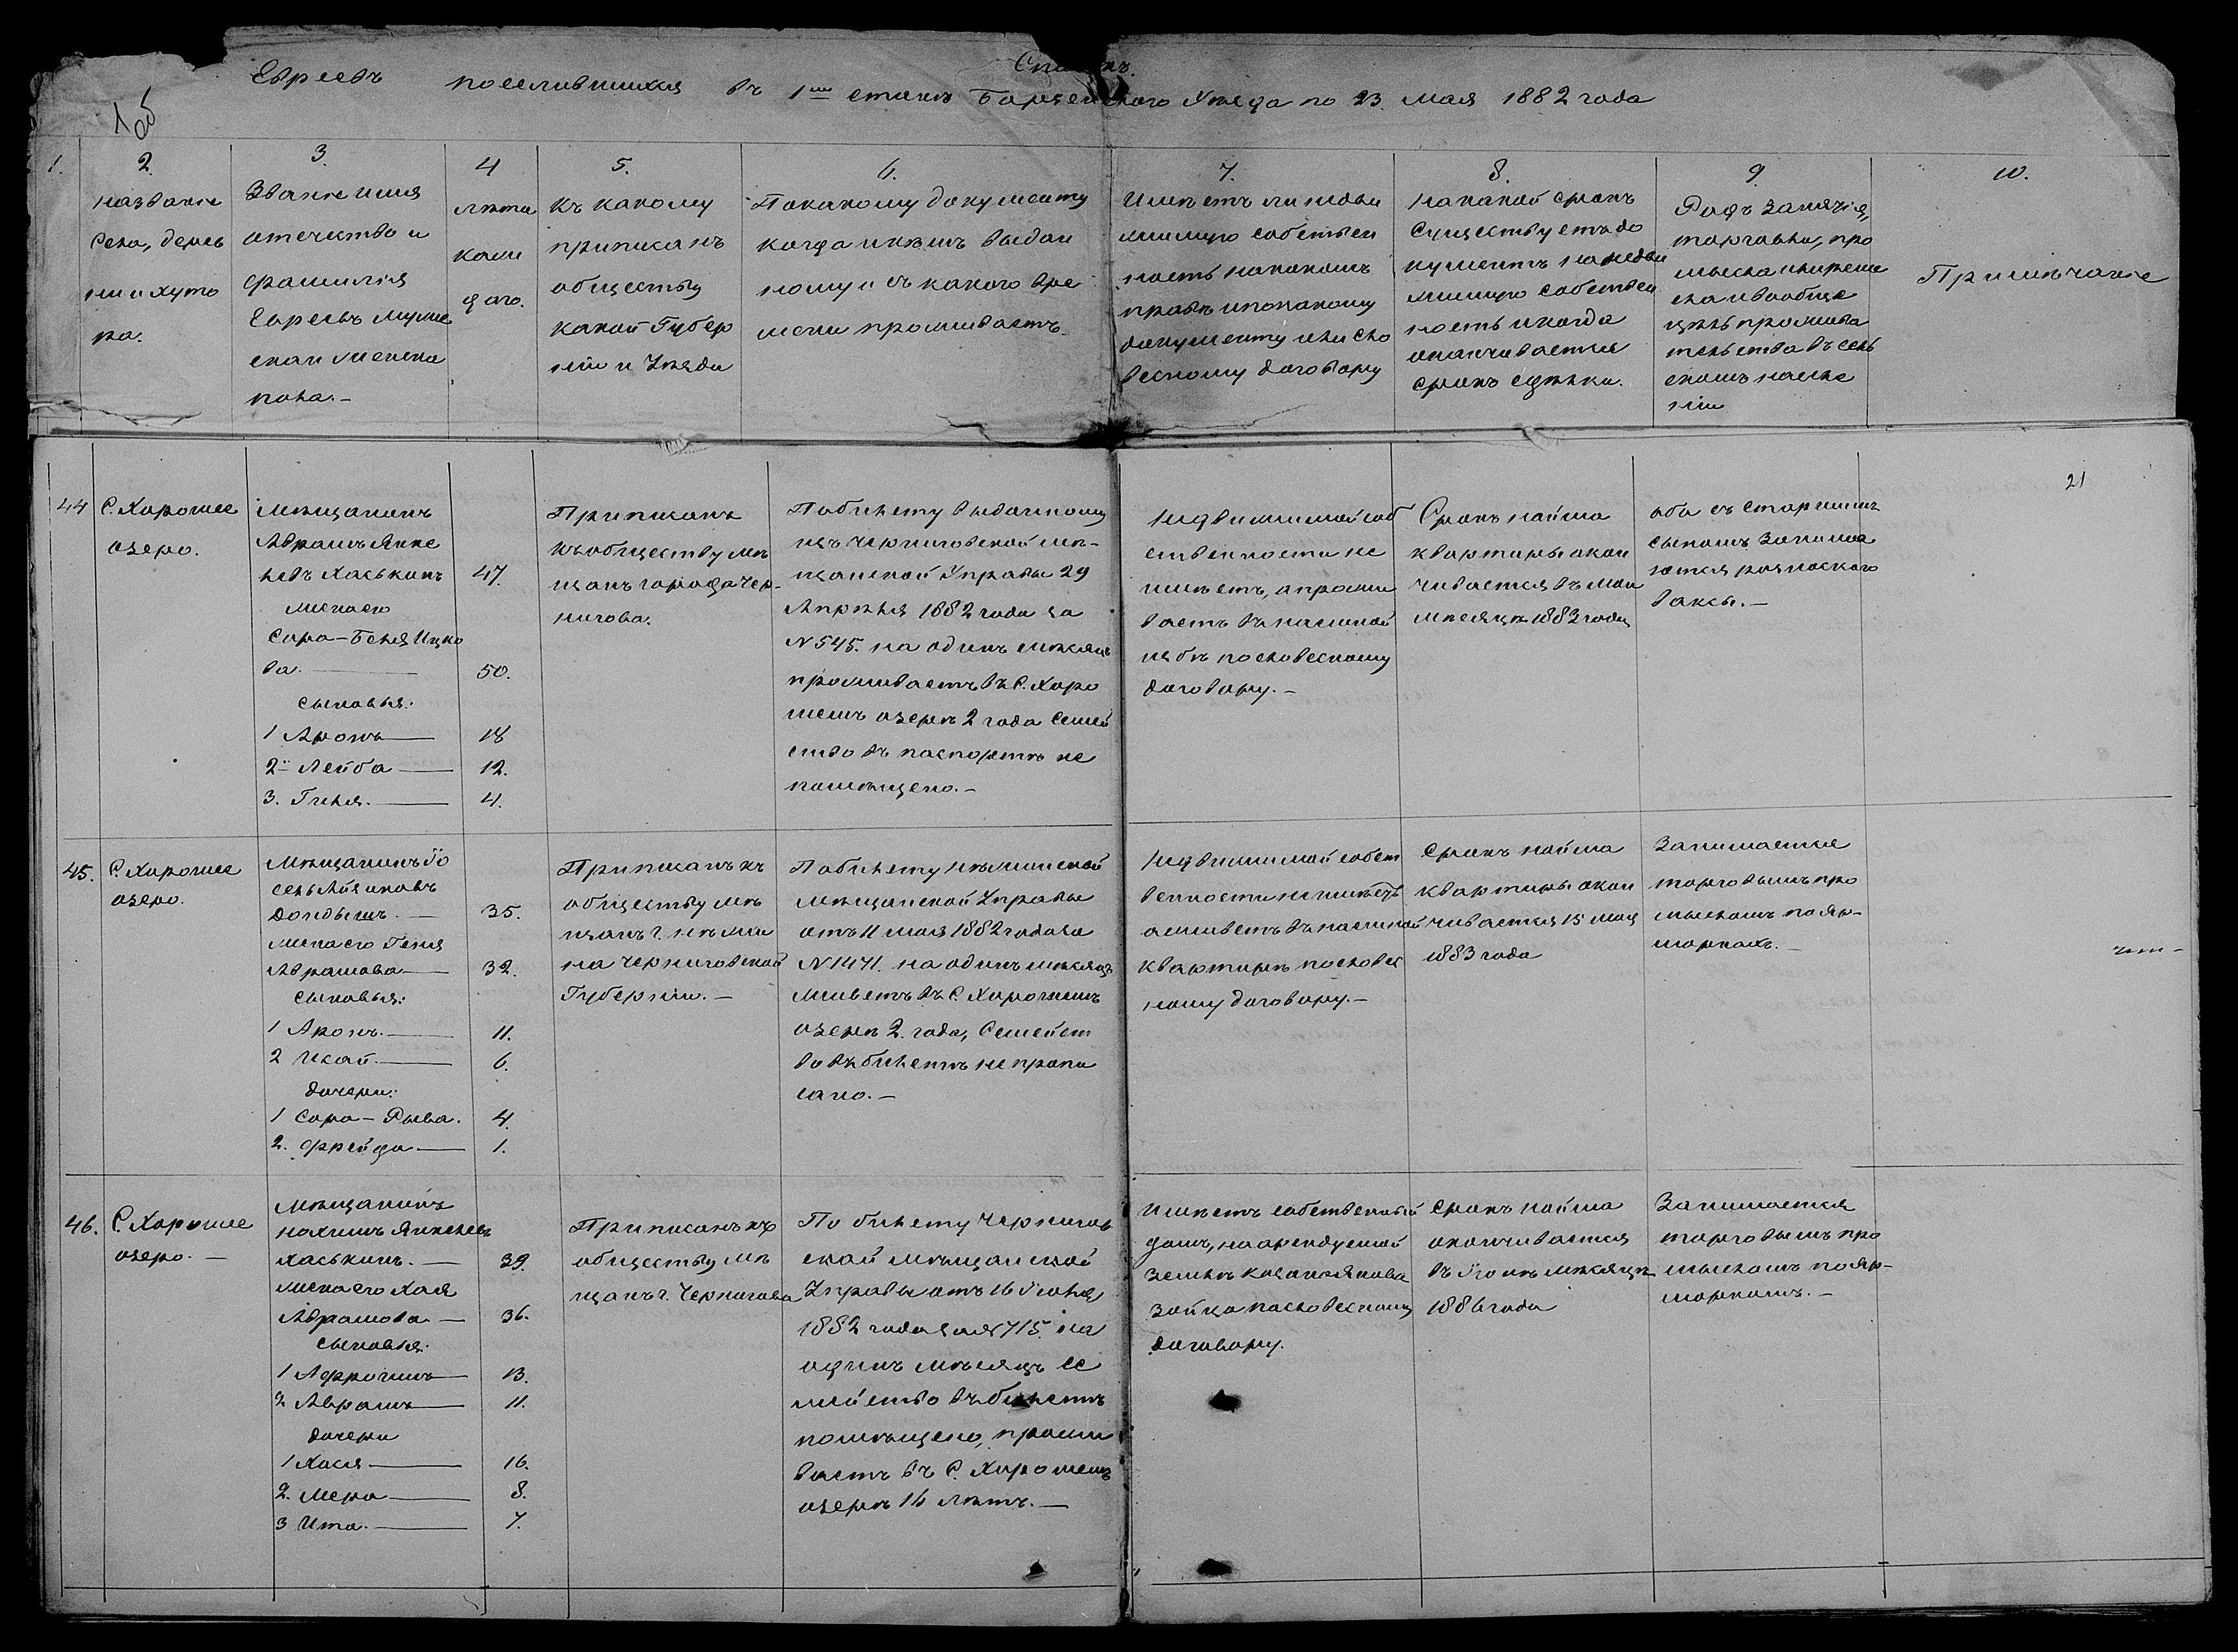 Списокъ.
Евреевъ поселившихся въ 1мъ станѣ Борзенского Уѣзда по 23. мая 1882 года
1.
2.
названіе
Села, дерев
ни и хуто
ра.
3.
Званіе имя
отечество и
фамилія
Евреевъ муже
скаи женска
пола.-
4
лѣта
каж
даго.
5.
Къ какому
приписанъ
обществу
какой Губер
ніи и Уѣзда
6.
По какому документу
когда и кѣмъ выдан
ному и съ какого вре
мени проживаетъ.
7.
Имѣетъ ли недви
жимую собствен
ность на какомъ
правѣ и по какому
документу или сло
весному договору
8.
на какой срокъ
существуетъ до
кументъ на недви
жимую собствен
ность и когда
оканчивается
срокъ сдѣлки.
9.
Родъ занятія,
торговли, про
мысла и ремѣ
сла и вообще
цѣль прожива
тельства въ сель
скомъ населе
ніи
10.
Примѣчаніе
21
44
С. Хорошее
озеро.
Мѣщанинъ
Абрамъ Янке
левъ Хаськинъ 47.
Жена его
Сора-Беня Ицко
ва. 50.
Сыновья:
1 Аронъ 18
2 Лейба 12.
3. Гиля. 4.
Приписанъ
къ обществу мѣ
щанъ города Чер-
нигова.
По билету выданному
изъ Черниговской мѣ-
щанской Управы 29
Апрѣля 1882 года за
№ 545. на одинъ мѣсяцъ
проживаетъ въ С. Хоро
шемъ озерѣ 2 года семей
ство въ паспортѣ не
помѣщено.-
Недвижимой соб
ственности не
имѣетъ, а прожи
ваетъ въ наемной
избѣ по словесному
договору.-
Срокъ найма
квартиры окон
чивается въ Маѣ
мѣсяцѣ 1883 года
оба съ старшимъ
сыномъ занима
ются
ваксы.-
45.
С. Хорошее
озеро.
Мѣщанинъ Іо
сель
35.
Жена его Геня
Абрамова 32.
Сыновья:
1 Аронъ. 11.
2 Исай. 6.
дочери:
1 Сора-Рыва. 4.
2. Фрейда 1.
Приписанъ къ
обществу мѣ
щанъ г. Нѣжи
на Черниговской
Губерніи.-
По билету Нѣжинской
Мѣщанской Управы
отъ 11 мая 1882 года за
№ 1471. на одинъ мѣсяцъ
живетъ въ С. Хорошемъ
озерѣ 2. года, Семейст
во въ билетѣ не пропи
сано.-
Недвижимой собст
венности неимѣетъ
а живетъ въ наемной
квартирѣ по словес
ному договору.-
Срокъ найма
квартиры окон
чивается 15 мая
1883 года
Занимается
торговымъ про
мысломъ по яр-
маркамъ.-
46.
С. Хорошее
озеро.-
Мѣщанинъ
Нахимъ Янкелевъ
Хаськинъ.- 39.
Жена его Хая
Абрамова- 36.
Сыновья:
1 Афроимъ 13.
2 Абрамъ 11.
дочери
1 Хася 16.
2. Мера 8.
3 Ита. 7.
Приписанъ къ
обществу мѣ
щанъ г. Чернигова
По билету Чернигов
ской Мѣщанской
Управы отъ 16 Іюня
1882 года за № 715. на
одинъ мѣсяцъ се
мейство въ билетѣ
помѣщено, прожи
ваетъ въ С. Хорошемъ
озерѣ 16 лѣтъ.-
Имѣетъ собственный
домъ, на арендуемой
землѣ
Зайца по словесному
договору.
Срокъ найма
окончивается
въ Іюнѣ мѣсяцѣ
1886 года
Занимается
торговымъ про
мысломъ по яр-
маркамъ.-